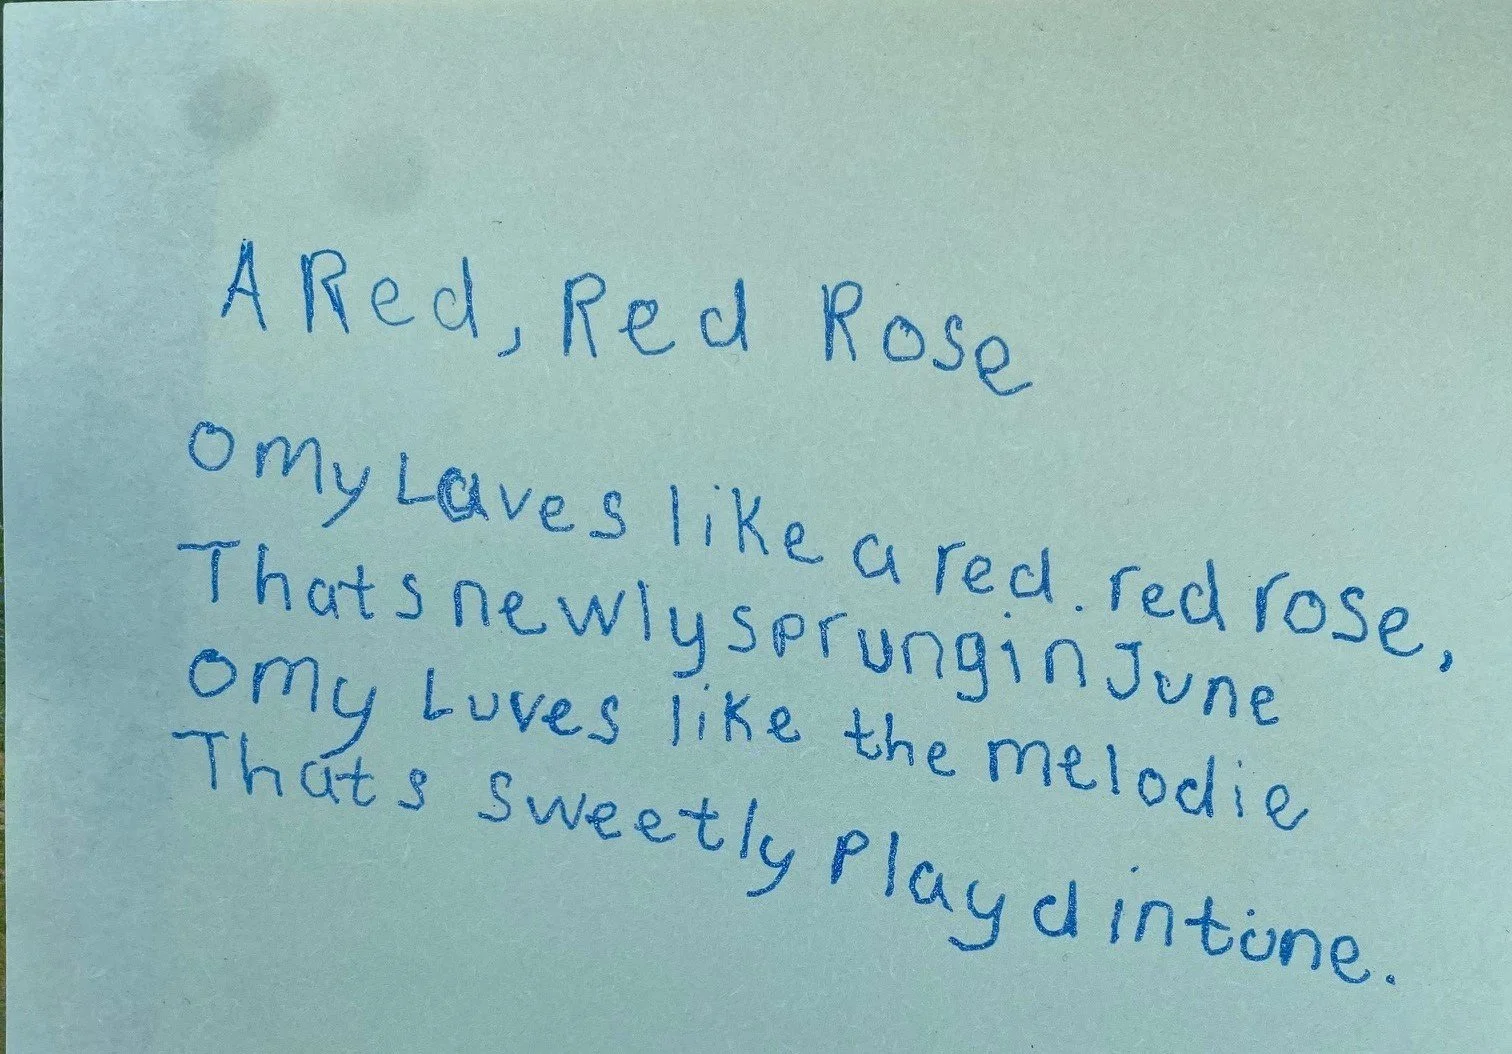 A Red, Red Rose
O my Laves like a red. red rose,
Thats newly sprung in June
O my Luves like the melodie
Thats sweetly play d in tune.